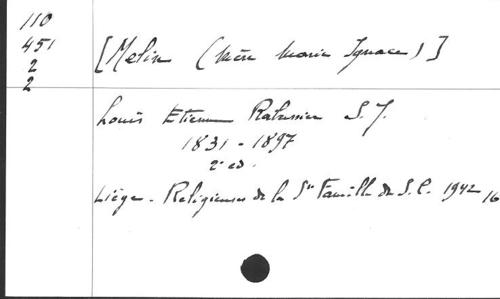 110
451
2
2
[Melin (Mère Marie Ignace)]
Louis Etienne Rabussier S.J.
1831-1897
2e ed.
Liège - Religieuses de la Ste Famille du S.C. 1942 16